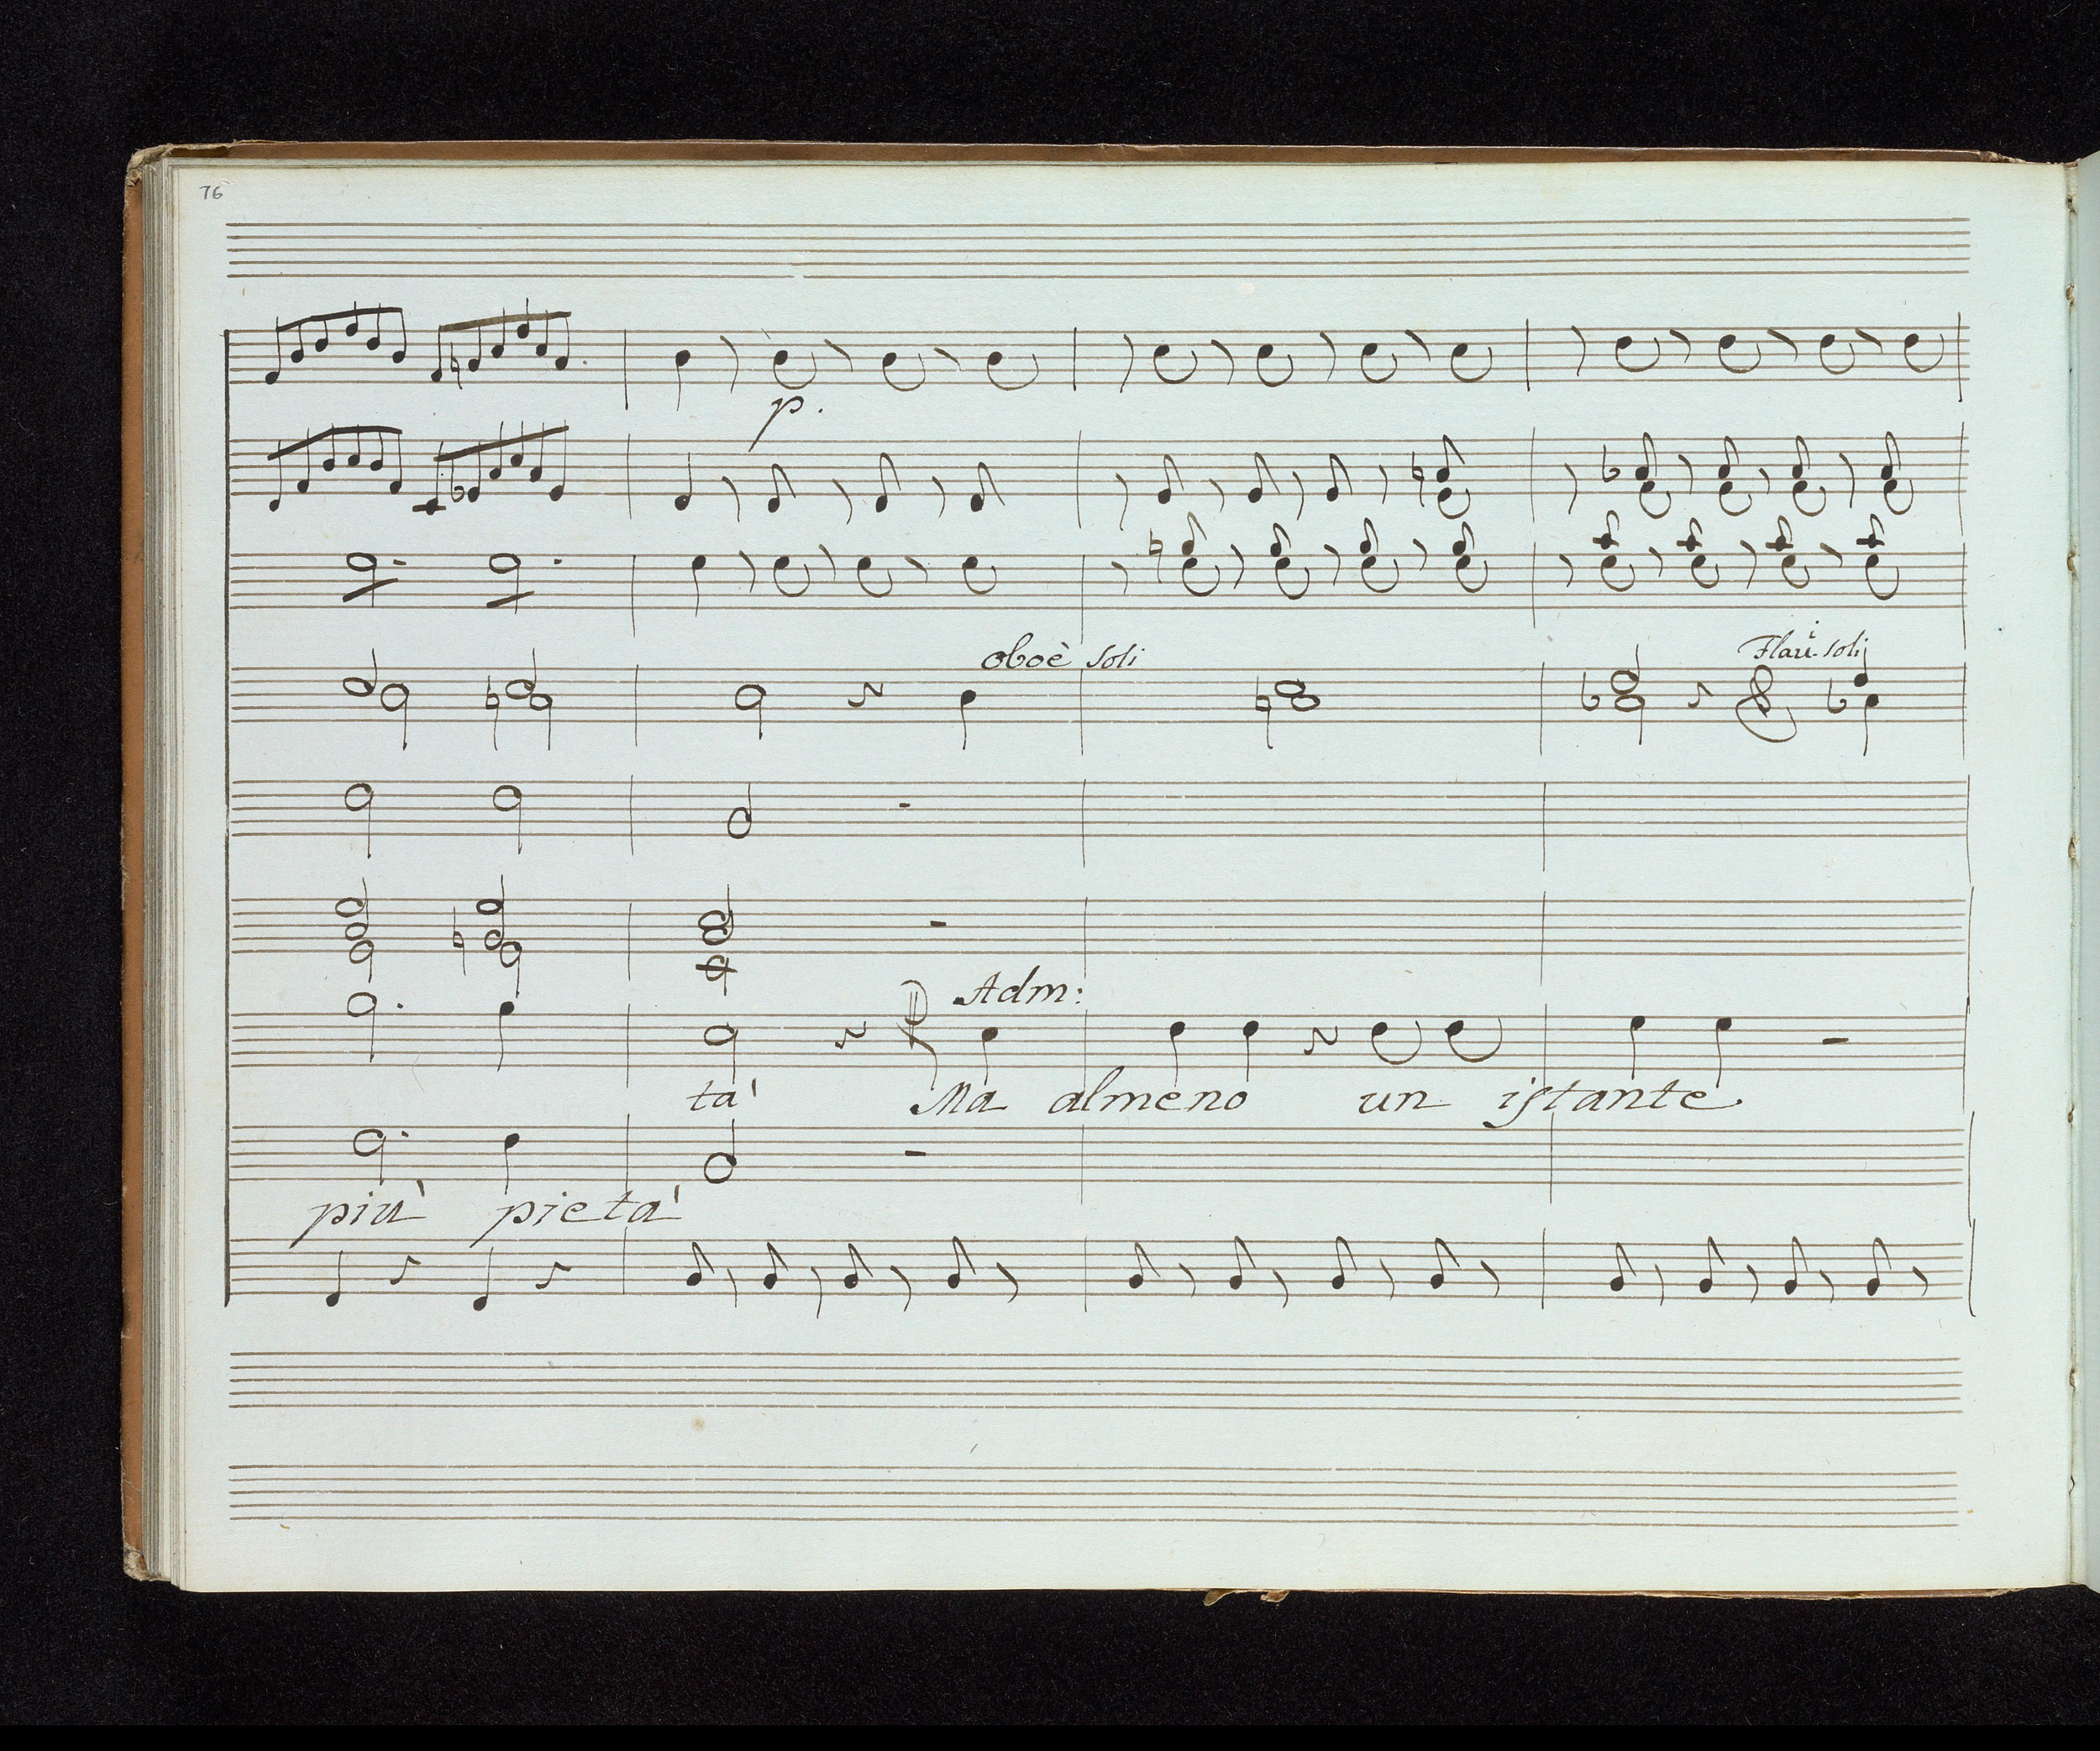 76
p.
oboè soli
Flaui soli
Adm:
ta' Ma almeno un istante
più pietà